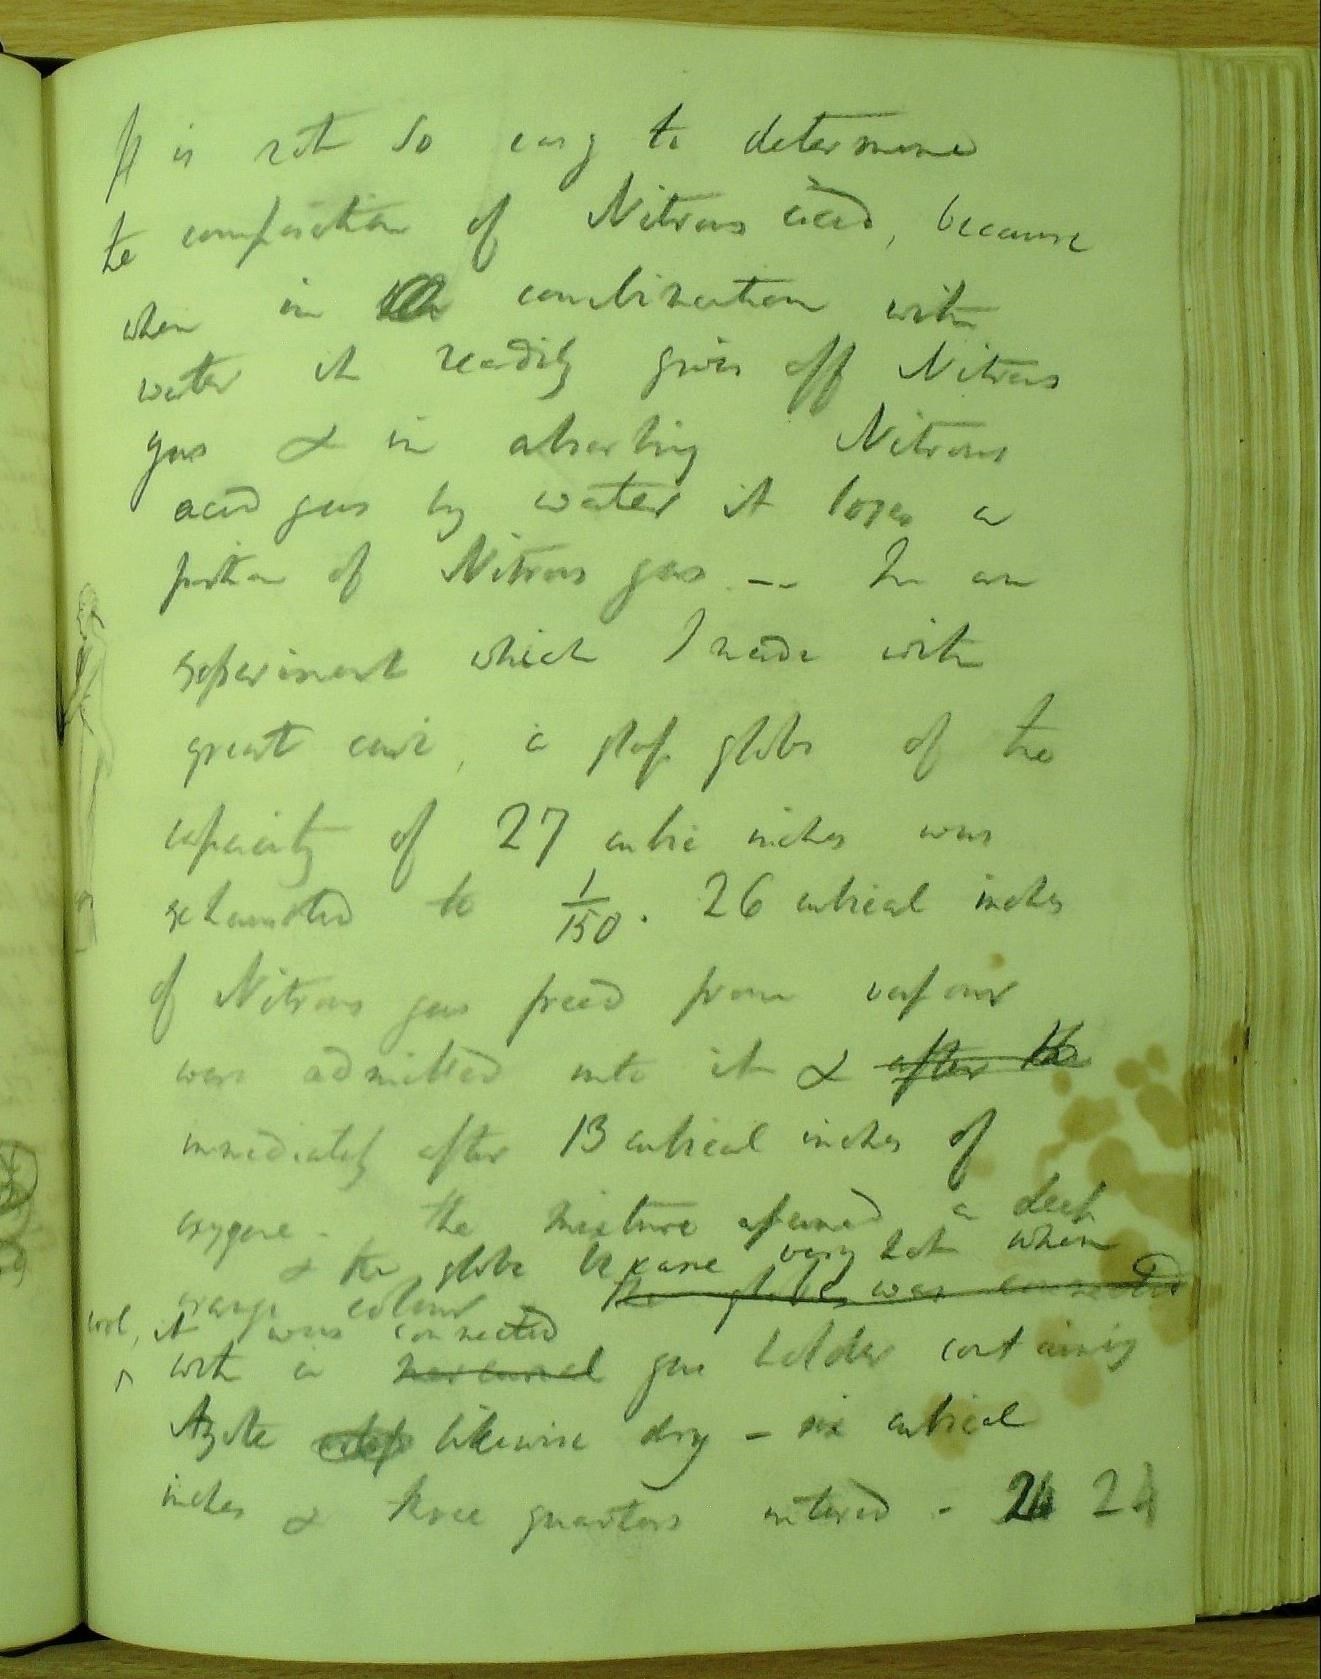 It is not so easy to determine
the composition of Nitrous acid, because
when in combination with
water it readily gives off Nitrous
gas & in absorbing Nitrous
acid gas by water it loses a
portion of Nitrous gas -- In an
experiment which I made with
great care, a glass globe of the
capacity of 27 cubic inches was
exhausted to 1/150. 26 cubical inches
of Nitrous gas freed from vapour
was admitted into it & after the
immediately after 13 cubical inches of
oxygene. the mixture assumed a deep
& the globe became very hot when
orange colour the globe was connected
cool, it was connected
with a mercurial gas holder containing
Azote likewise dry - six cubical
inches & three quarters entered - 24